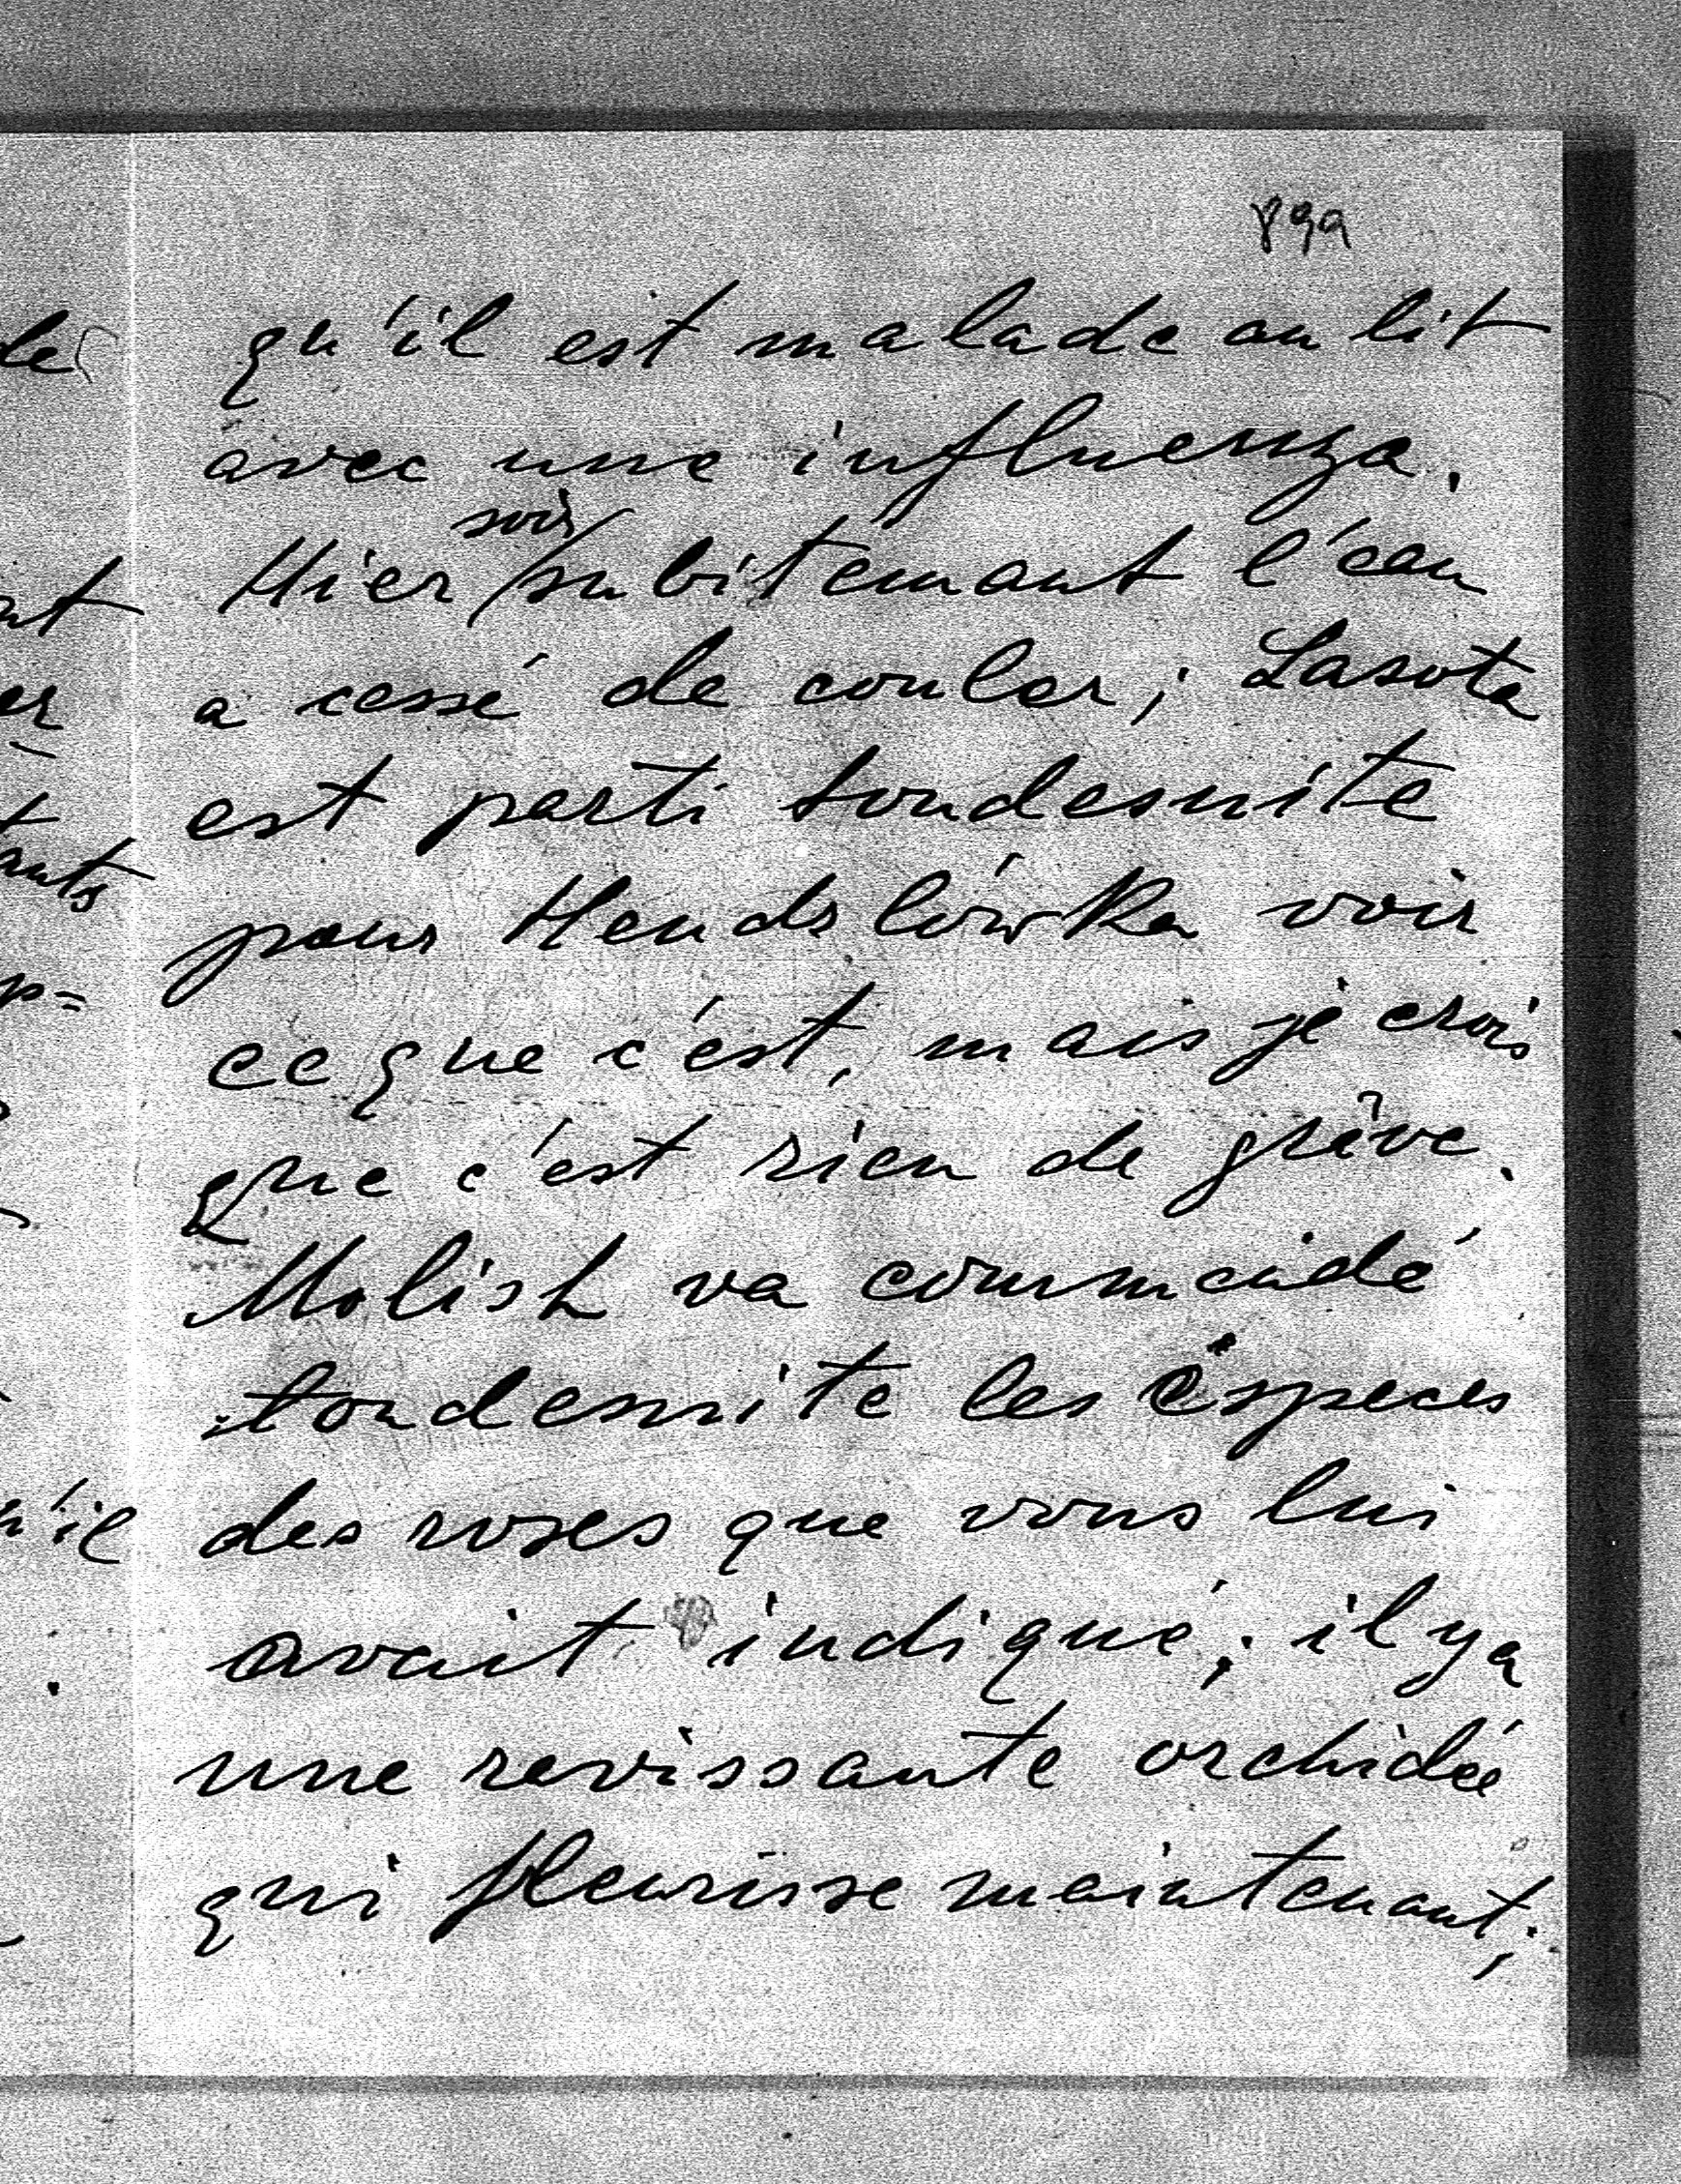 899
qu'il est malade au lit
avec une influenza.
Hier soir subitemant l'eau
a cessé de couler; Lasota
est parti toudesuite
pour Hendslówka voir
ce que c'est, mais je crois
que c'est rien de grave.
Molish va commendé
toudesuite les éspeces
des roses que vous lui
avait indiqué; il y a
une revissante orchidée
qui fleurisse maintenant;